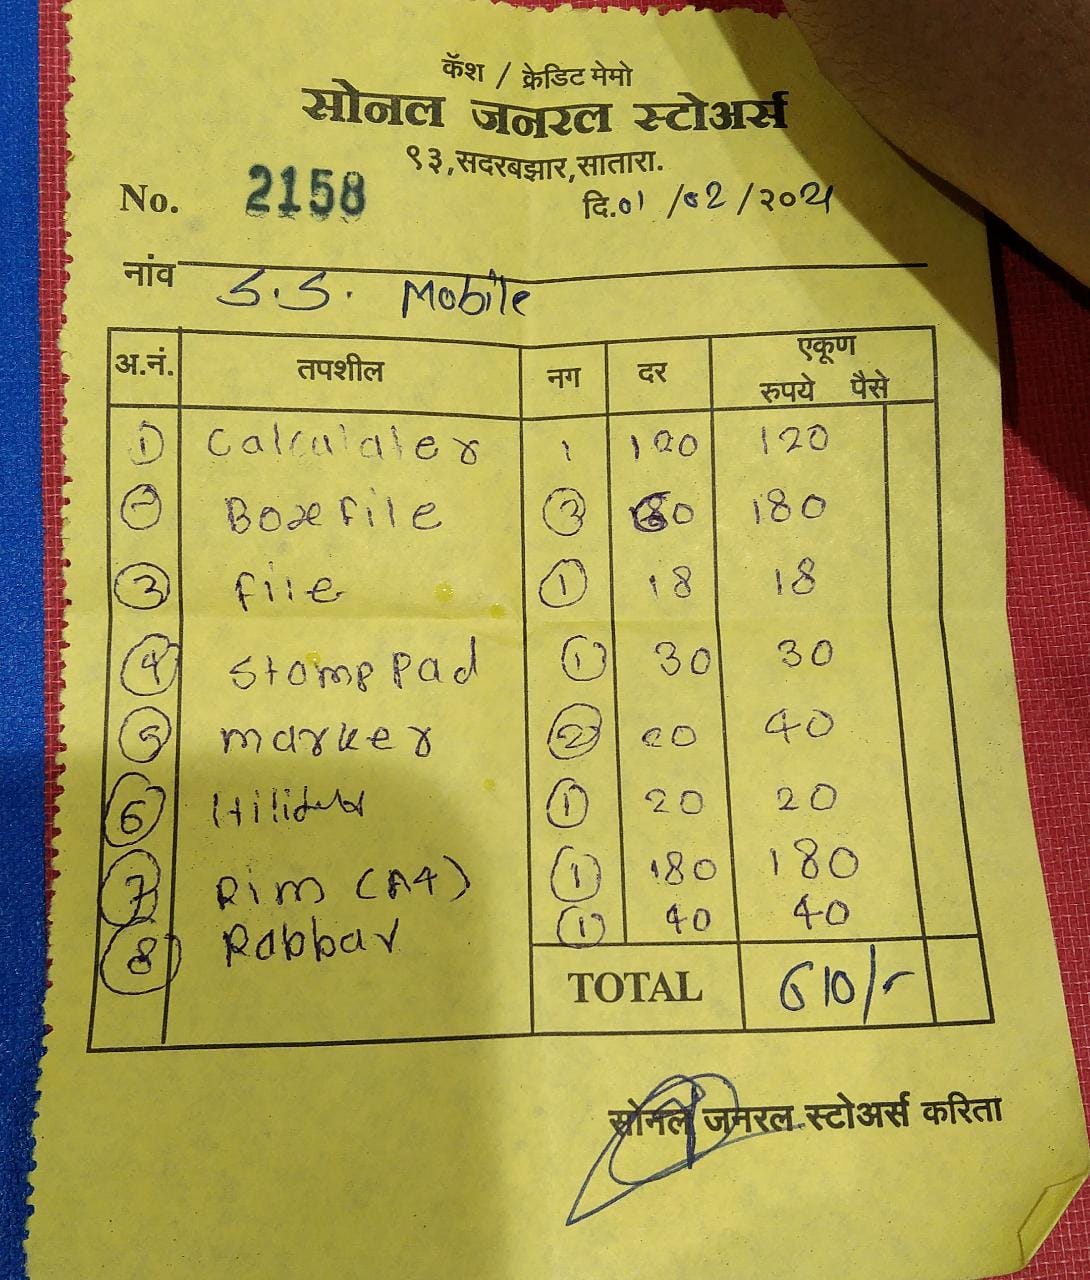 कॅश / क्रेडिट मेमो
सोनल जनरल स्टोअर्स
९३,सदरबझार,सातारा.
No. 2158 दि.01/02/२०21
नांव S.S. Mobile
अ.नं. तपशील नग दर एकूण रुपये पैसे
1 Calculater 1 120 120
2 Boxfile 3 60 180
3 file 1 18 18
4 Stamp Pad 1 30 30
5 marker 2 20 40
6 1 20 20
7 Rim (A4) 1 180 180
8 Rabbar 1 40 40
TOTAL 610/-
सोनल जनरल स्टोअर्स करिता